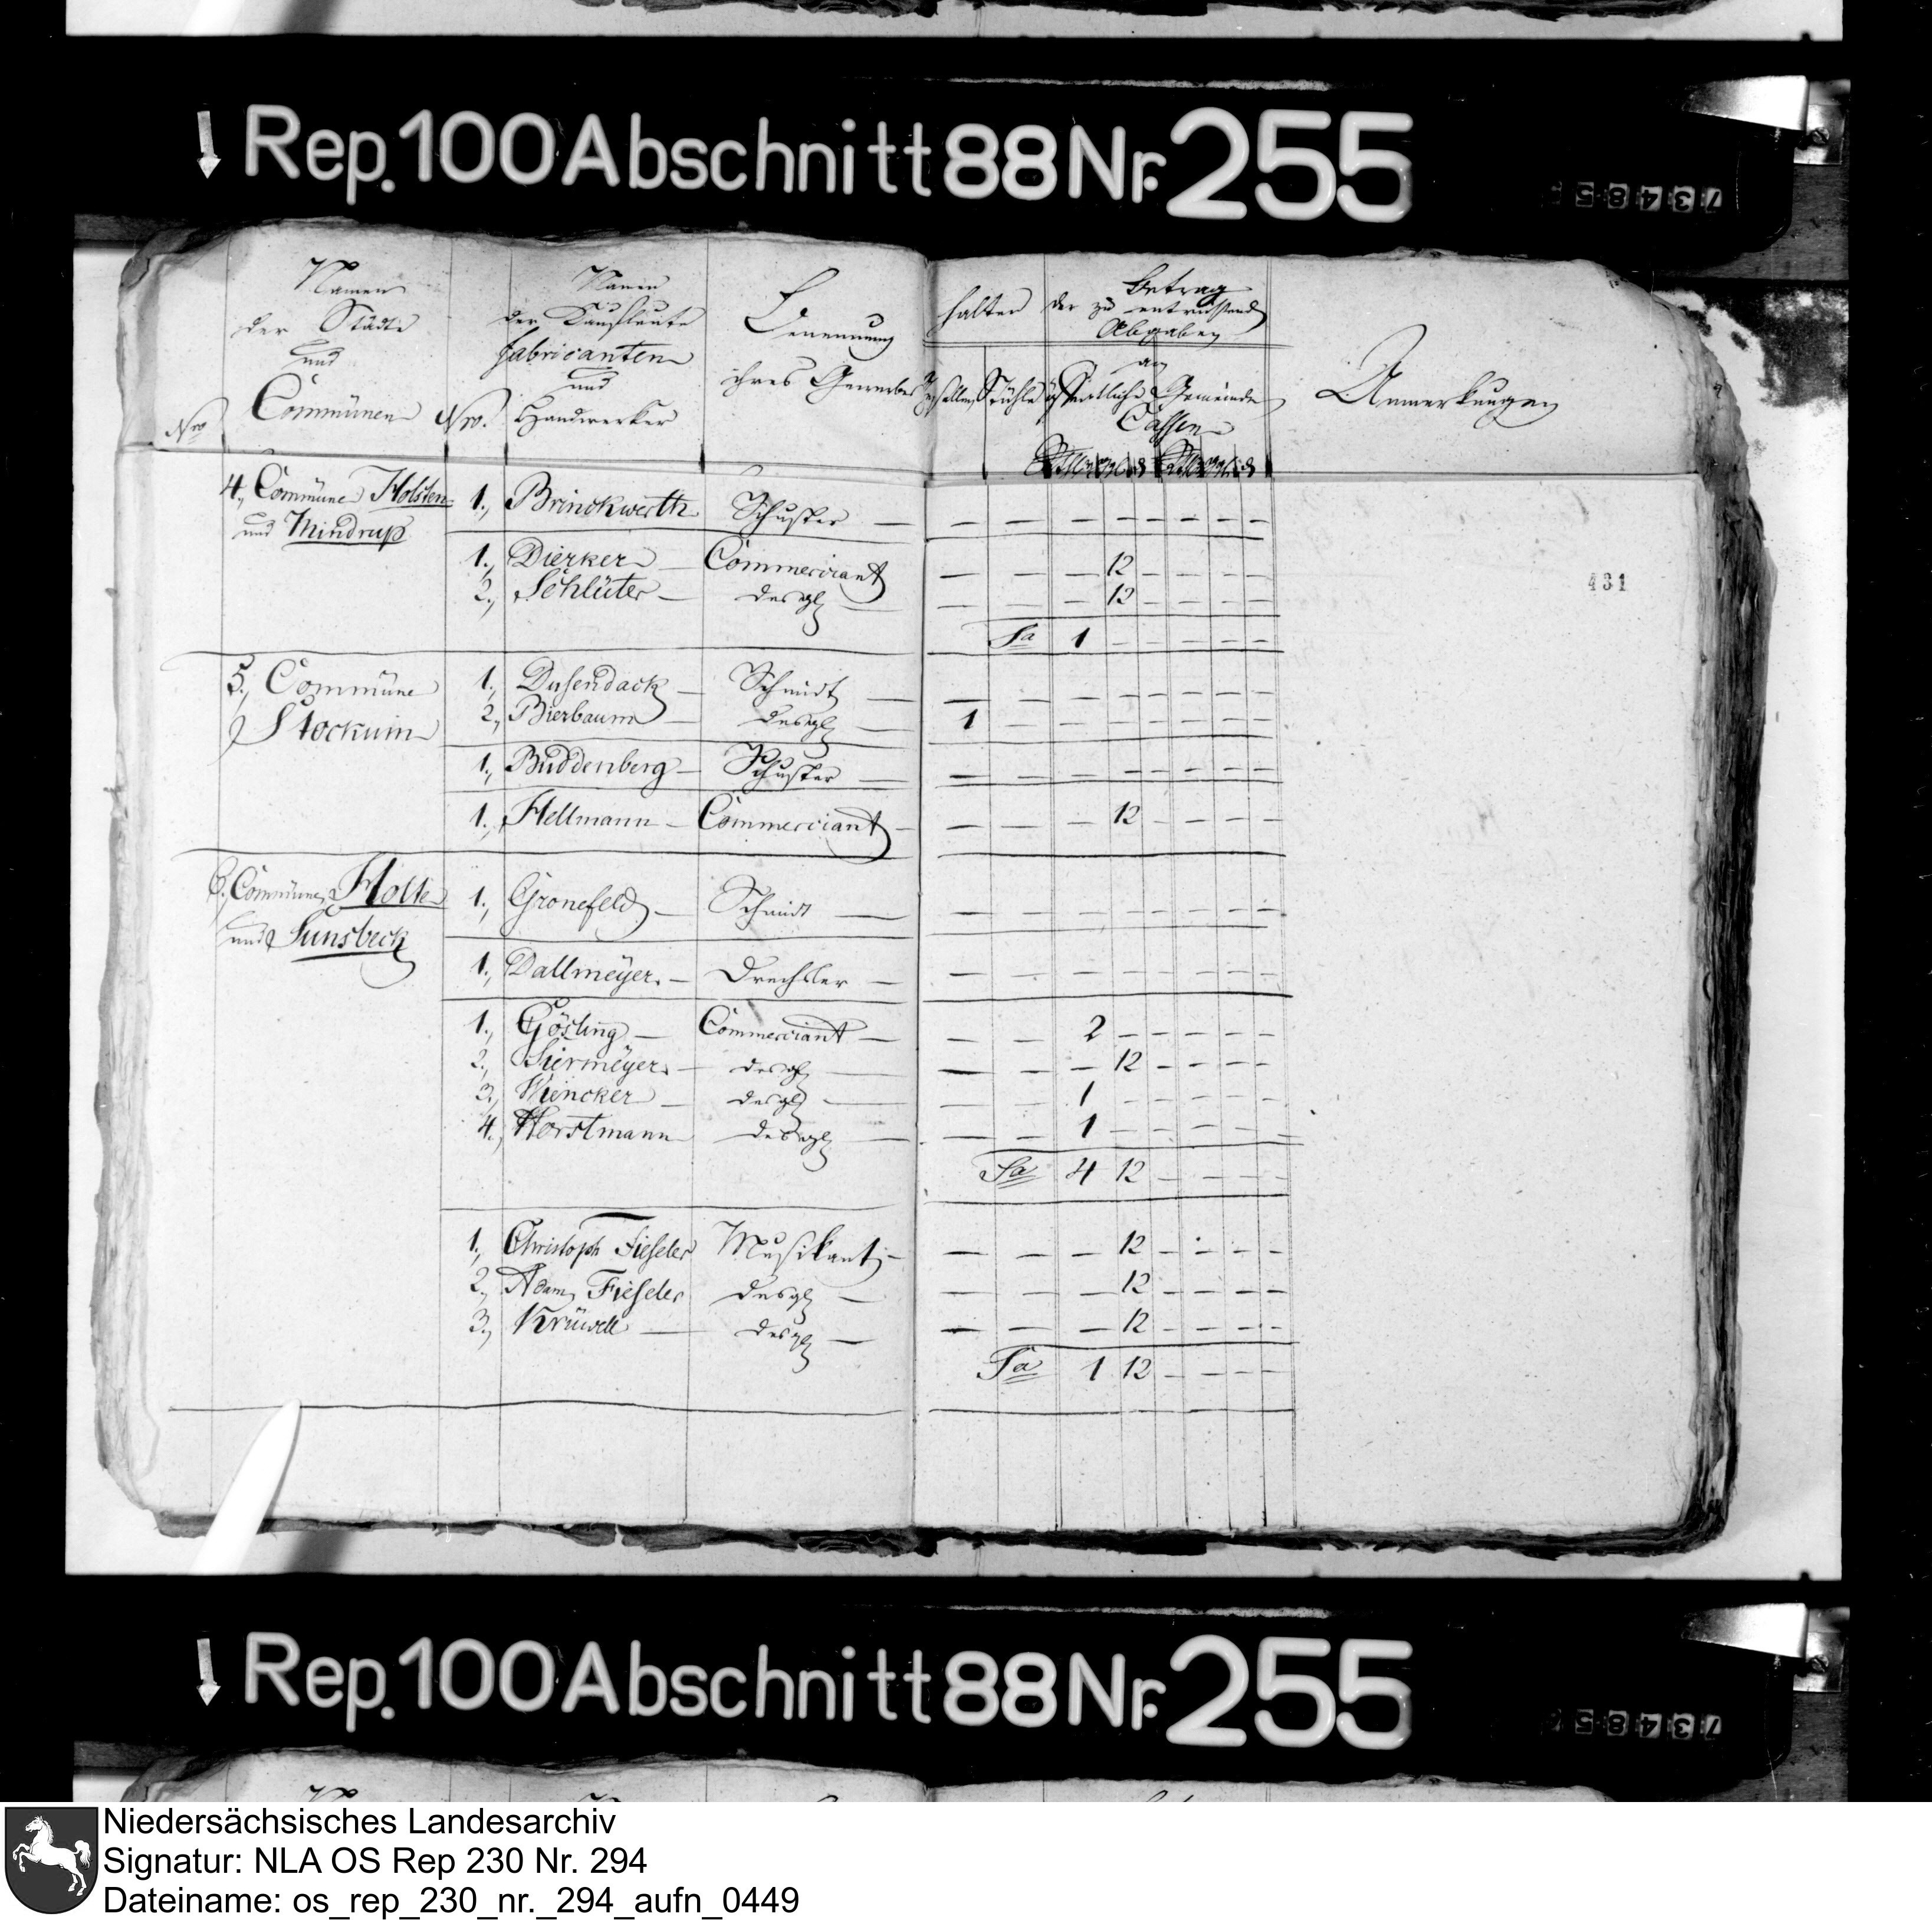 Rep. 100 Abschnitt 88 Nr. 255
Namen der Städte und Communen
Nro
Nro.
Namen der Kaufleute fabricanten und Handwerker
Benennung ihres Gewerbes
halten
Gesellen Stühle
Betrag der zu entrichtend Abgaben
an
öffentliche Gemeinde
Cassen
Anmerkungen
431
4., Commüne Holsten und Mindrup
1., Brinckwerth Schuster — — — — — — — — —
1., Dierker — Commerciant — — — 12 — — — —
2., Schlüter — desgl — — — — 12 — — — —
Sa 1 — — — — —
5., Commüne Stockum
1., Dusendack — Schmidt — — — — — — — — —
2., Bierbaum — desgl — 1 — — — — — — —
1., Buddenberg — Schuster — — — — — — — — —
1., Hellmann — Commerciant — — — — 12 — — — —
6., Commüne Holte und Sunsbeck
1., Gronefeld — Schmidt — — — — — — — — —
1., Dallmeÿer. — Drechsler — — — — — — — — —
1., Gösling — Commerciant — — — 2 — — — — —
2., Siermeÿer. — desgl — — — — 12 — — — —
3., Wincker — desgl — — — 1 — — — — —
4., Horstmann desgl — — — 1 — — — — —
Sa 4 12 — — — —
1., Christoph Fieseler Musikant — — — — 12 — — — —
2., Adam Fieseler desgl — — — — 12 — — — —
3., Krüwell — desgl — — — — 12 — — — —
Sa 1 12 — — — —
Rep. 100 Abschnitt 88 Nr. 255
Niedersächsisches Landesarchiv
Signatur: NLA OS Rep 230 Nr. 294
Dateiname: os_rep_230_nr._294_aufn_0449